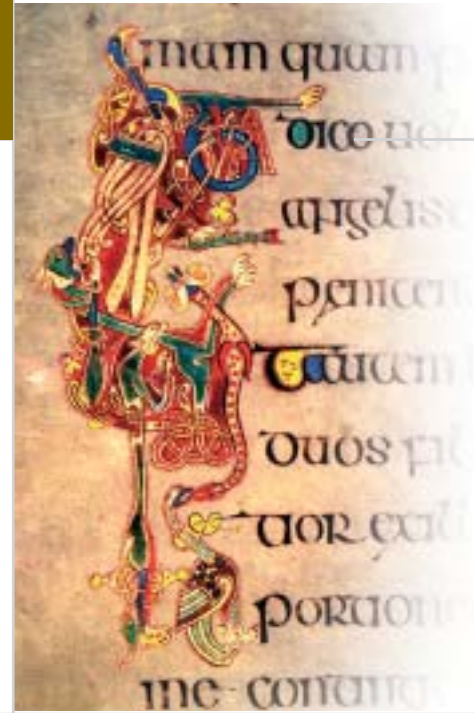 mam quam p
dico uo
angelis
peniten
autem
duos fil
tior ex il
portion
me conting